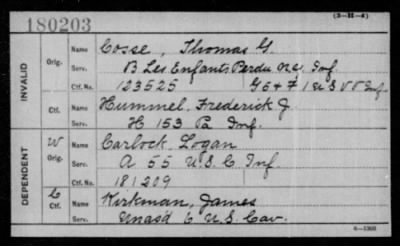 180203
(3-11-4)
INVALID
Orig.
Name Cosse, Thomas G.
Serv. B Les Enfants Perdu N.Y. Inf.
Ctf. No. 123525 G & F 1 U S V V Inf.
Ctf.
Name Hummel, Frederick J.
Serv. H 153 Pa Inf.
DEPENDENT
W
Orig.
Name Carlock, Logan
Serv. A 55 U.S.C. Inf.
Ctf. No. 181209
C
Ctf.
Name Kirkman, James
Serv. Unasd 6 U.S. Cav.
6—1360